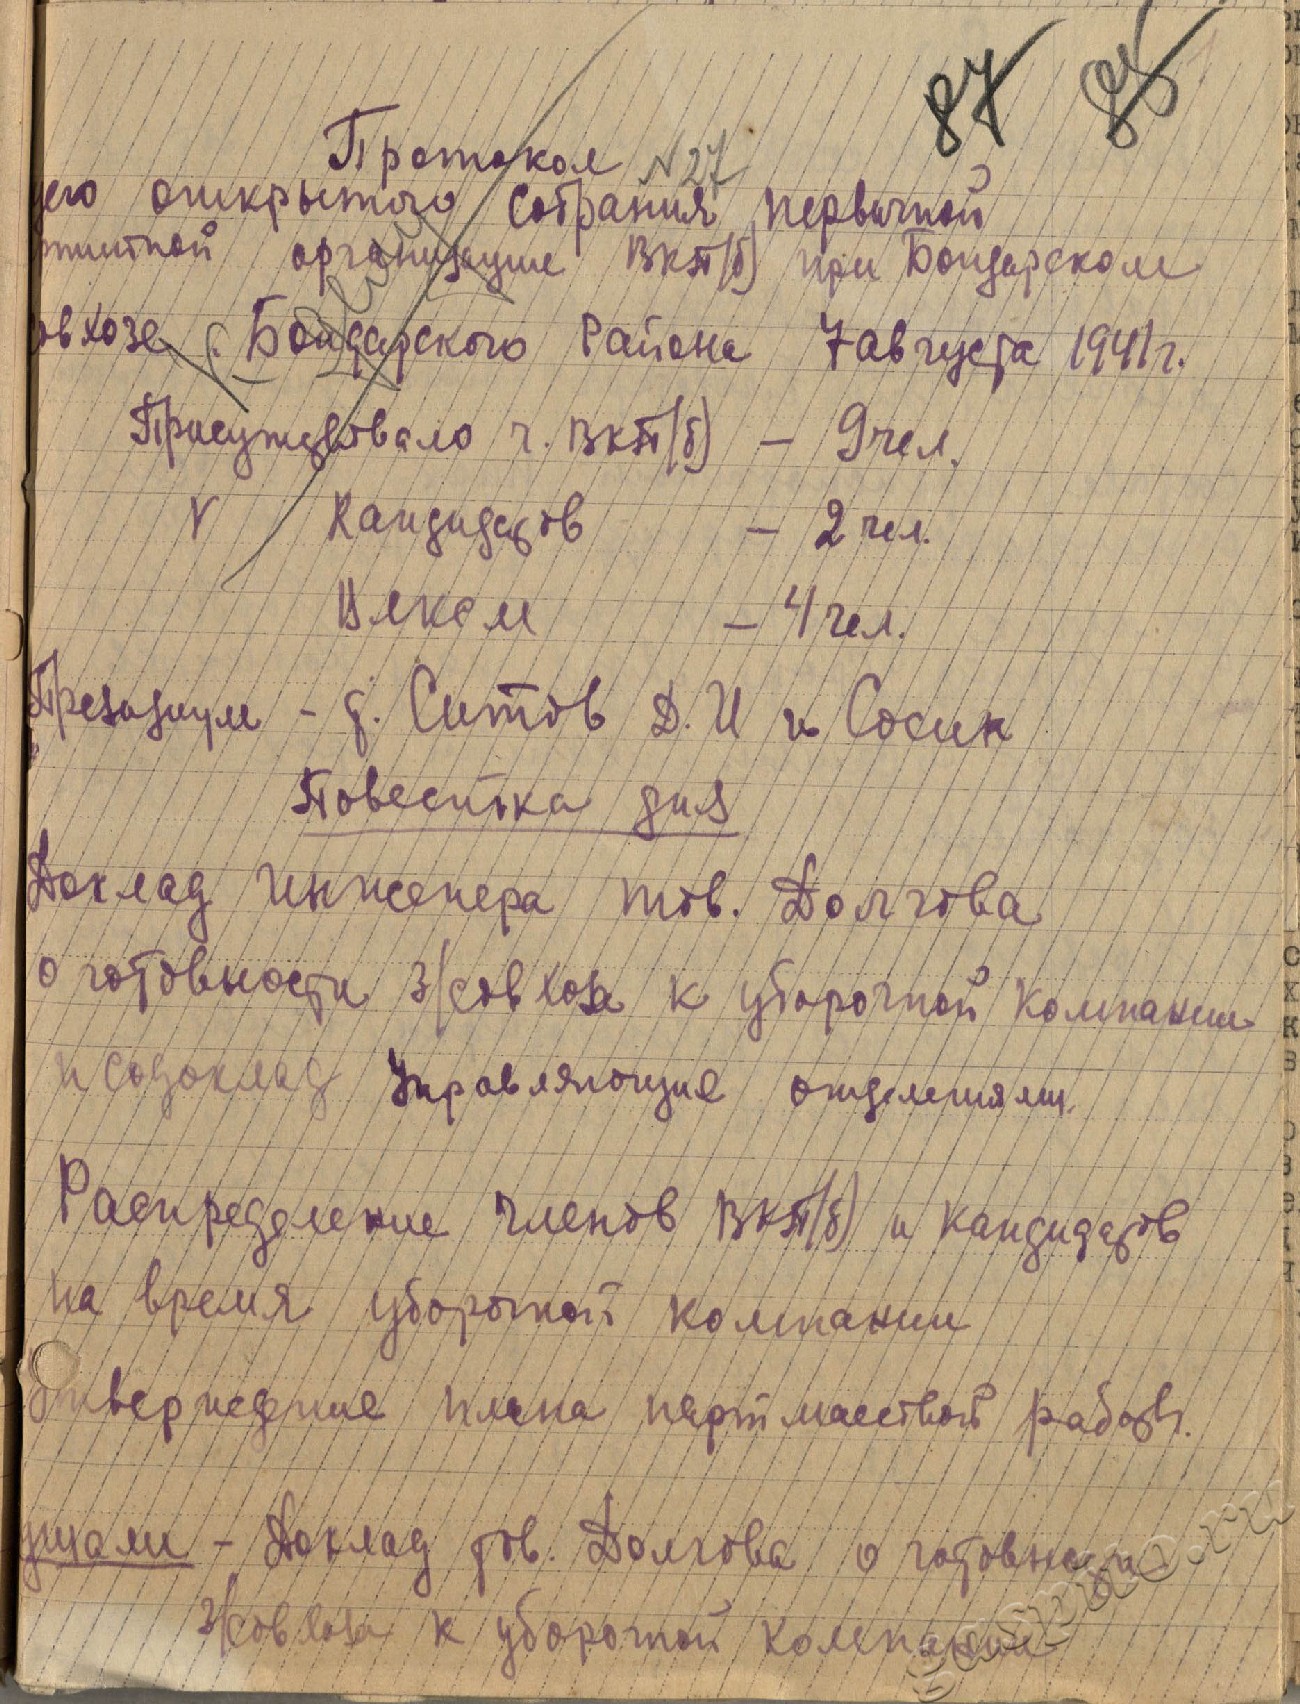 87 85
Протокол №27
его открытого собрания первичной
ртийной организации ВКП(б) при Бондарском
овхозе Бондарского района 7 августа 1941 г.
Присутствовало ч. ВКП(б) — 9 чел.
V Кандидатов — 2 чел.
ВЛКСМ — 4 чел.
Президиум — т. Ситов Д. И и Сосин
Повестка дня
Доклад инженера тов. Долгова
о готовности з/совхоза к уборочной компании
и содоклад Управляющие отделениями.
Распределение членов ВКП(б) и кандидатов
на время уборочной компании
Утверждение плана партмассовой работы.
ушали — Доклад тов. Долгова о готовности
з/совхоза к уборочной компании
gaspito.ru